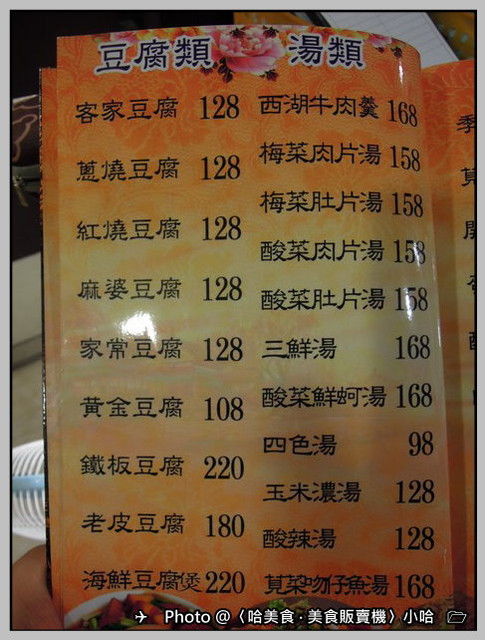 豆腐類
客家豆腐 128
蔥燒豆腐 128
紅燒豆腐 128
麻婆豆腐 128
家常豆腐 128
黃金豆腐 108
鐵板豆腐 220
老皮豆腐 180
海鮮豆腐煲 220
湯類
西湖牛肉羹 168
梅菜肉片湯 158
梅菜肚片湯 158
酸菜肉片湯 158
酸菜肚片湯 158
三鮮湯 168
酸菜鮮蚵湯 168
四色湯 98
玉米濃湯 128
酸辣湯 128
莧菜吻仔魚湯 168
Photo @〈哈美食·美食販賣機〉小哈